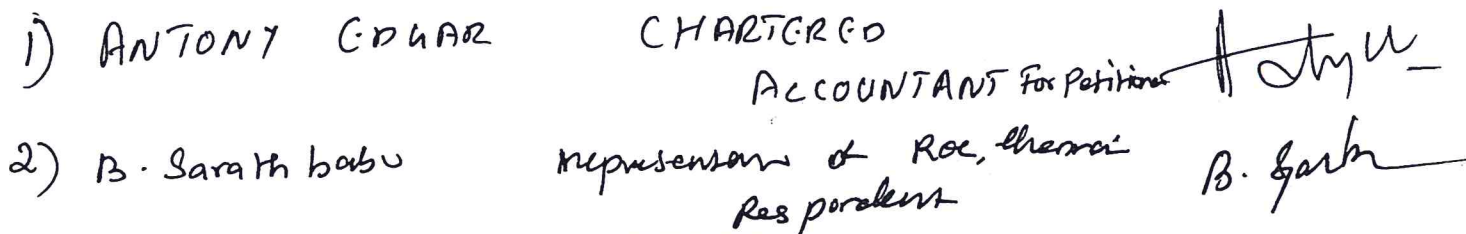 1) ANTONY EDGAR CHARTERED
ACCOUNTANT For Petitioner
2) B. Sarath babu representative of ROC, Chennai
Respondent B. Sarath